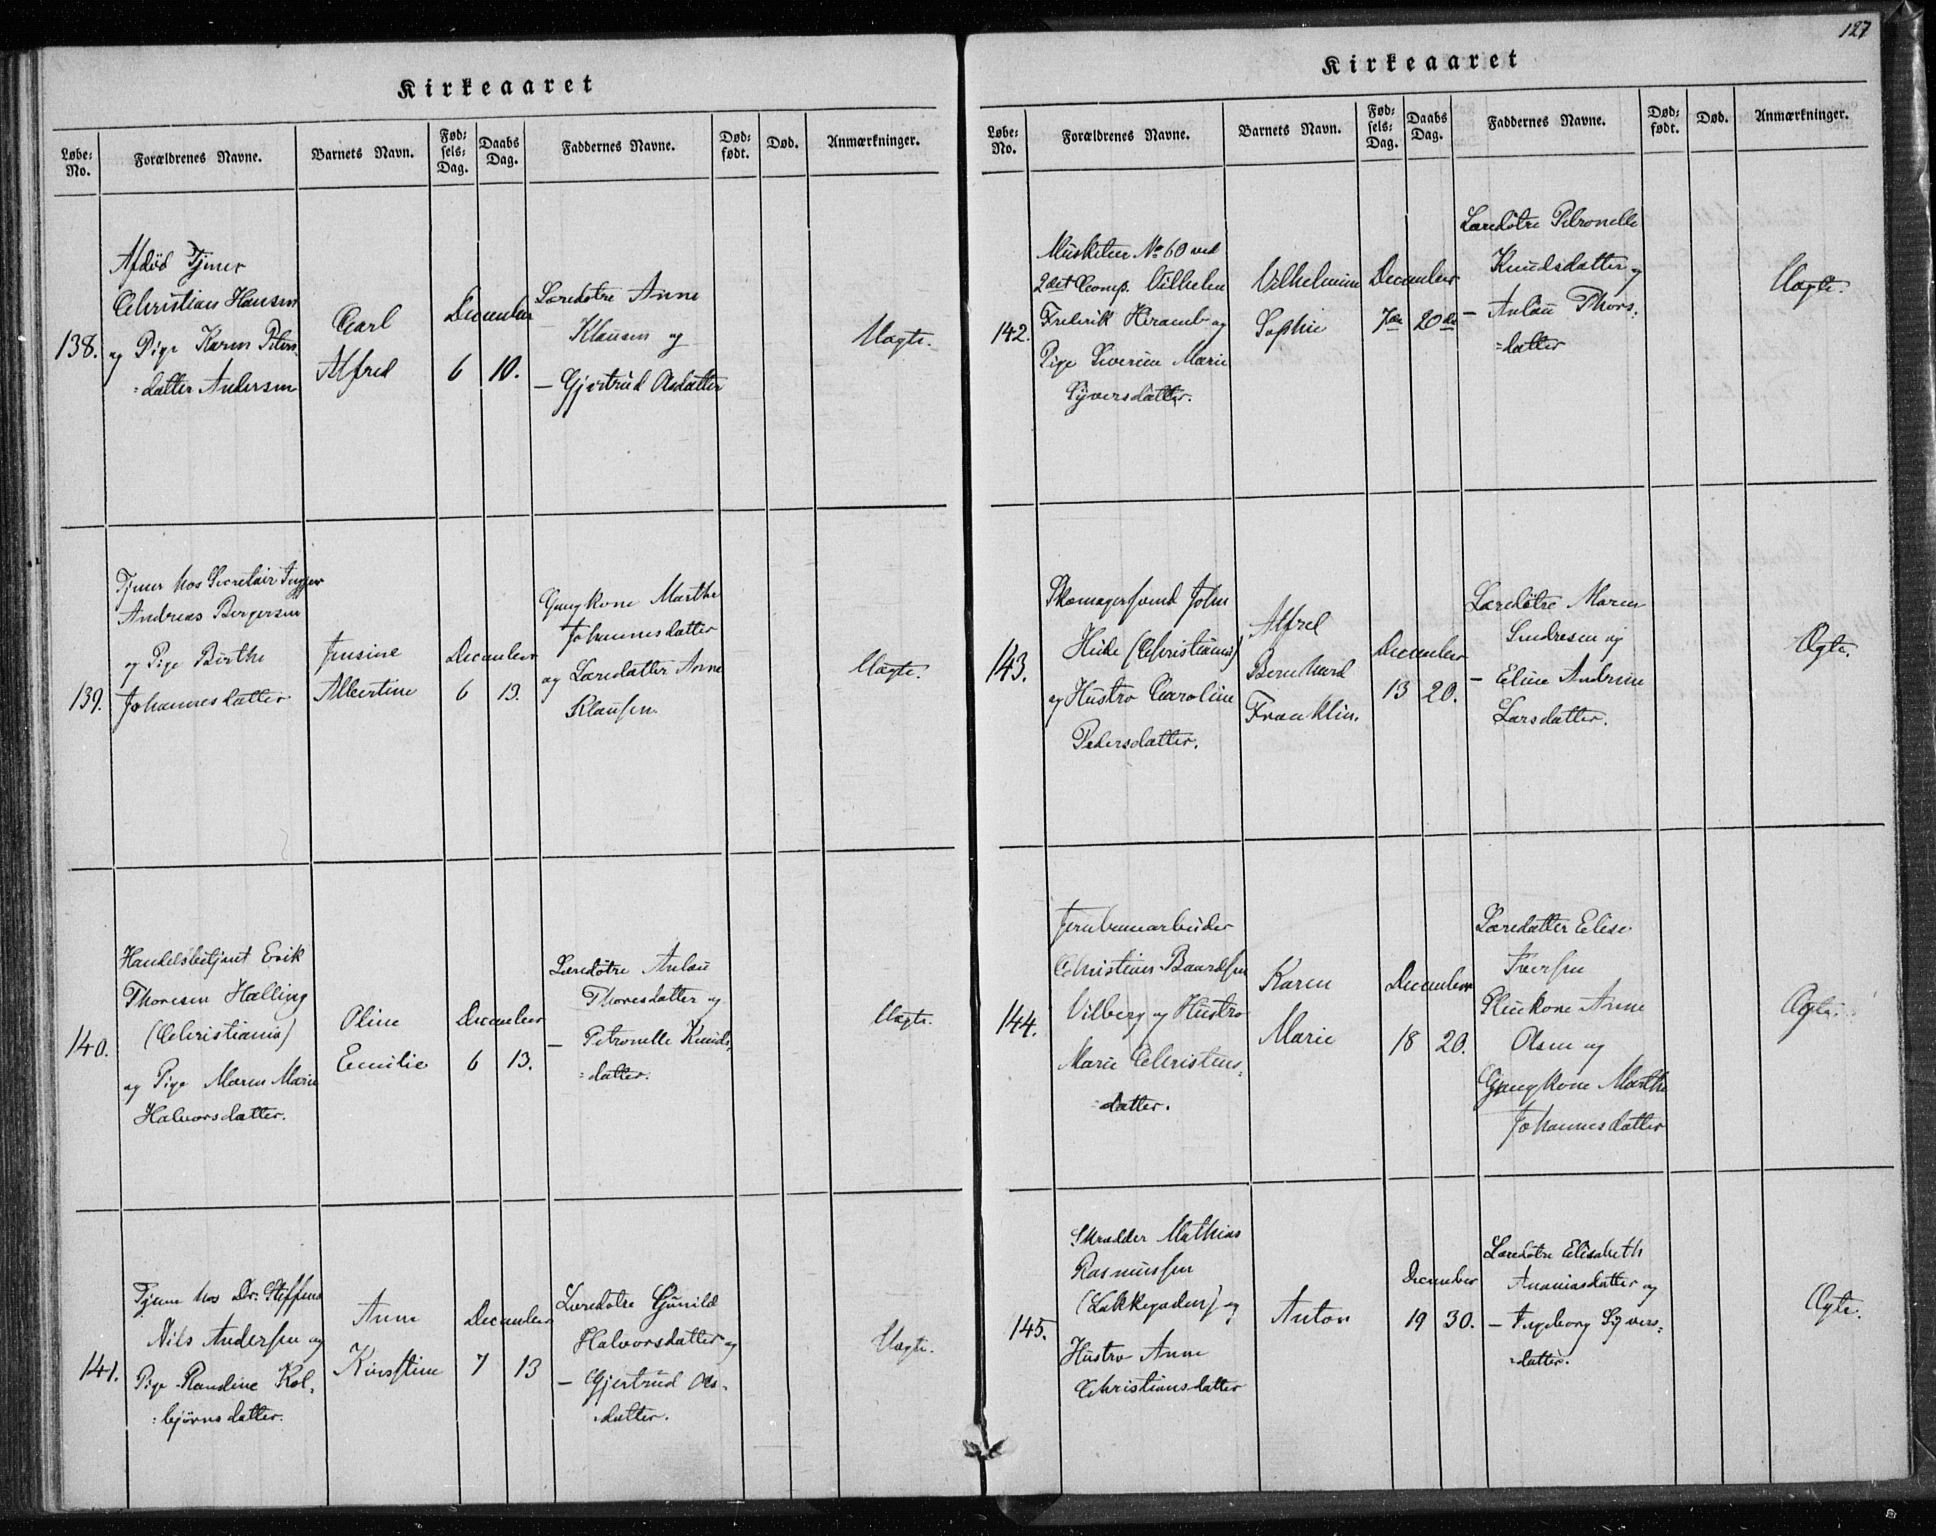 127
Kirkeaaret
Løbe-No. Forældrenes Navne. Barnets Navn. Fødsels-Dag. Daabs Dag. Faddernes Navne. Dødfødt. Død. Anmærkninger.
138.
Afdød Tjener
Christian Hansen
og Pige Karen Peters
=datter Andersen
Carl
Alfred
December
6 10.
Læredøtre Anne
Klausen og
— Gjertrud Olsdatter
Uægte.
139.
Tjener hos Secretair
Andreas Bergersen
og Pige Birthe
Johannesdatter
Jensine
Albertine
December
6 13.
Gangkone Marthe
Johannesdatter
og Læredatter Anne
Klausen.
Uægte.
140.
Handelsbetjent Erik
Thoresen Halling
(Christiania)
og Pige Maren Marie
Halvorsdatter.
Oline
Emilie
December
6 13.
Læredøtre Anlau
Thoresdatter og
— Petronelle Knuds-
=datter.
Uægte.
141.
Tjener hos Dr. Steffens
Nils Andersen og
Pige Randine Kol-
=bjørnsdatter.
Anne
Kirstine
December
7 13
Læredøtre Gunild
Halvorsdatter og
— Gjertrud Ols-
=datter.
Uægte.
Kirkeaaret
Løbe-No. Forældrenes Navne. Barnets Navn. Fødsels-Dag. Daabs Dag. Faddernes Navne. Dødfødt. Død. Anmærkninger.
142.
Musketeer No 60 ved
2det Comp. Vilhelm
Frederik og
Pige Severine Marie
Syversdatter.
Vilhelmine
Sophie
December
7de 20de
Læredøtre Petronelle
Knudsdatter og
— Anlau Thors-
=datter
Uægte.
143.
Skomagersvend John
Hide (Christiania)
og Hustro Caroline
Pedersdatter.
Alfred
Bernhard
Franklin.
December
13 20.
Læredøtre Maren
Sndresen og
— Eline Andrine
Larsdatter.
Ægte.
144.
Jernbanearbeider
Christian Baardsen
Vilberg og Hustro
Marie Christens-
=datter.
Karen
Marie
December
18 20.
Læredatter Elise
Iversen
Pleiekone Anne
Olsen og
Gangkone Marthe
Johannesdatter
Ægte.
145.
Skrædder Mathias
Rasmussen
(Lakkegaden) og
Hustro Anne
Christiansdatter
Anton
December
19 30.
Læredøtre Elisabeth
Ananiasdatter og
— Ingeborg Syvers-
=datter.
Ægte.